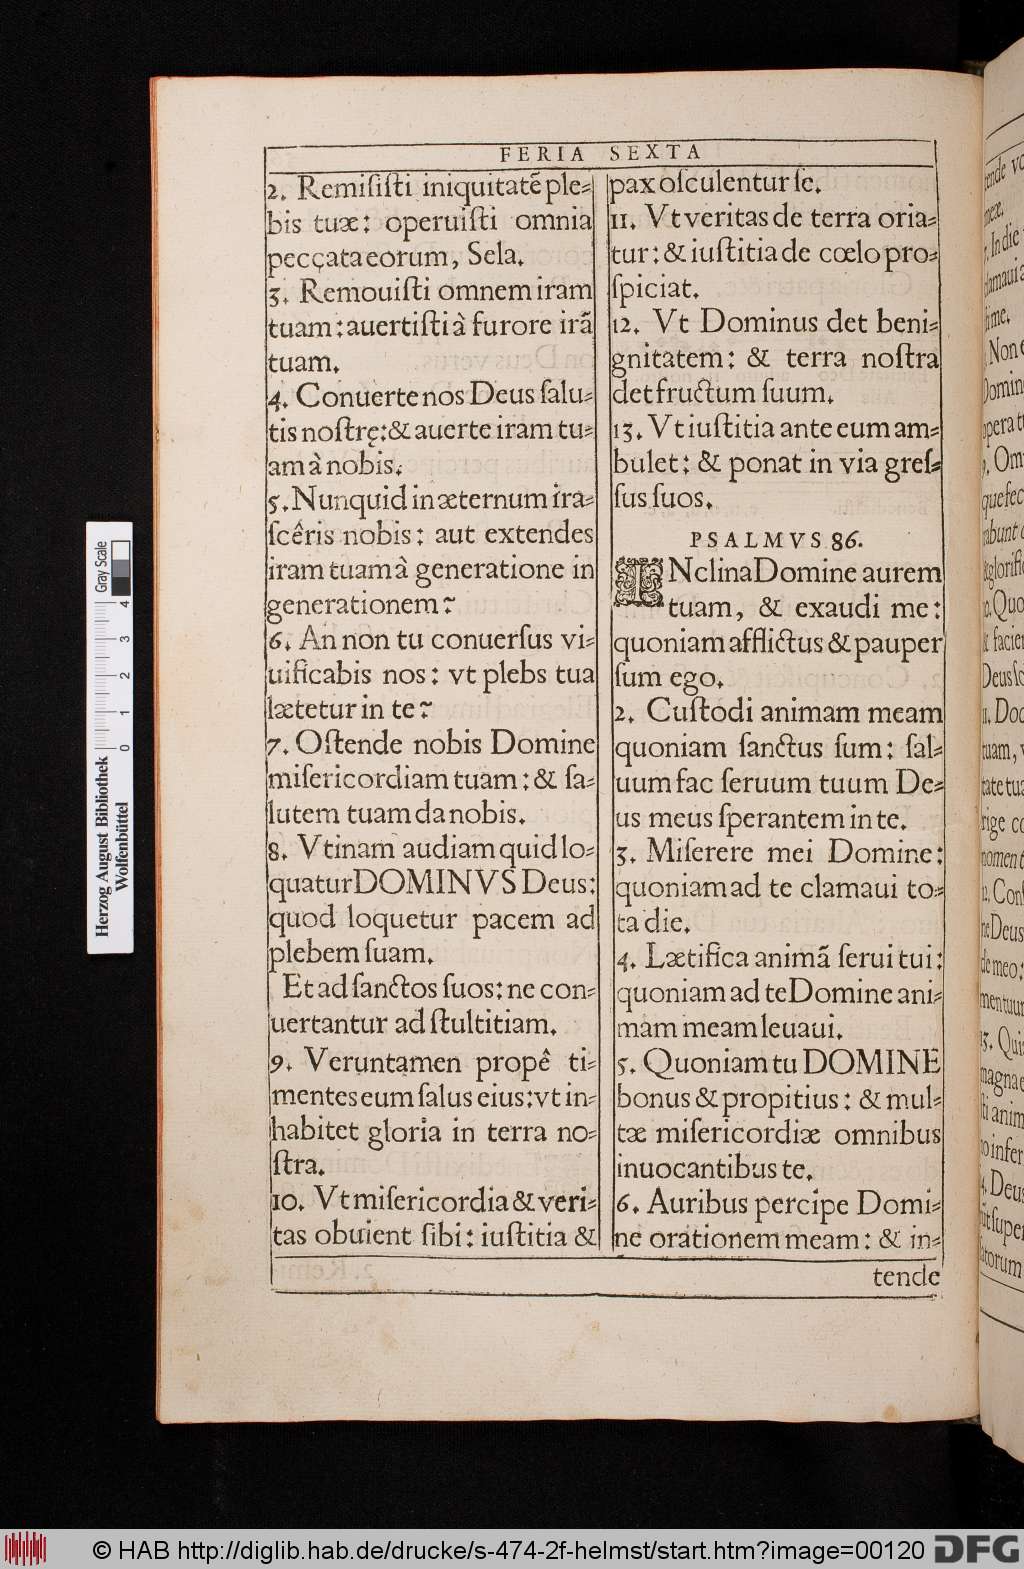 FERIA SEXTA
2. Remiſiſti iniquitatē ple=
bis tuæ: operuiſti omnia
pecçata eorum, Sela.
3. Remouiſti omnem iram
tuam: auertiſti à furore irā
tuam.
4. Conuerte nos Deus ſalu=
tis noſtrę: & auerte iram tu=
am à nobis.
5. Nunquid in æternum ira=
ſcêris nobis: aut extendes
iram tuam à generatione in
generationem?
6. An non tu conuerſus vi=
uificabis nos: vt plebs tua
lætetur in te?
7. Oſtende nobis Domine
miſericordiam tuam: & ſa=
lutem tuam da nobis.
8. Vtinam audiam quid lo=
quatur DOMINVS Deus:
quod loquetur pacem ad
plebem ſuam.
Et ad ſanctos ſuos: ne con=
uertantur ad ſtultitiam.
9. Veruntamen propê ti=
mentes eum ſalus eius: vt in=
habitet gloria in terra no=
ſtra.
10. Vt miſericordia & veri=
tas obuient ſibi: iuſtitia &
pax oſculentur ſe.
11. Vt veritas de terra oria=
tur: & iuſtitia de cœlo pro=
ſpiciat.
12. Vt Dominus det beni=
gnitatem: & terra noſtra
det fructum ſuum.
13. Vt iuſtitia ante eum am=
bulet: & ponat in via greſ=
ſus ſuos.
PSALMVS 86.
INclina Domine aurem
tuam, & exaudi me:
quoniam afflictus & pauper
ſum ego.
2. Cuſtodi animam meam
quoniam ſanctus ſum: ſal=
uum fac ſeruum tuum De=
us meus ſperantem in te.
3. Miſerere mei Domine:
quoniam ad te clamaui to=
ta die.
4. Lætifica animā ſerui tui:
quoniam ad te Domine ani=
mam meam leuaui.
5. Quoniam tu DOMINE
bonus & propitius: & mul=
tæ miſericordiæ omnibus
inuocantibus te.
6. Auribus percipe Domi=
ne orationem meam: & in=
tende
Herzog August Bibliothek
Wolfenbüttel
Gray Scale
0 1 2 3 4
© HAB http://diglib.hab.de/drucke/s-474-2f-helmst/start.htm?image=00120
DFG